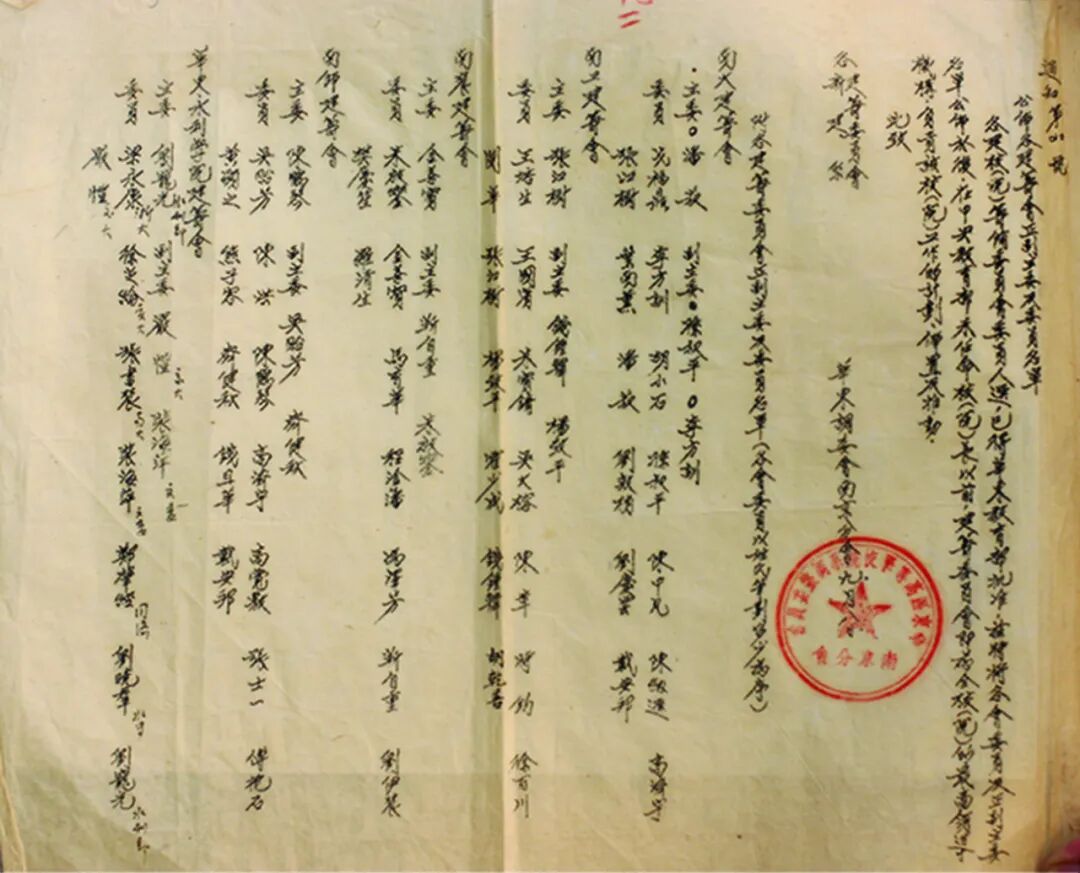 二
通知第 號
公佈各建筹會正副主委及委員名單
各建校(院)籌備委員會委員人選,已得華東教育部批准,茲將將各會委員及正副主委
名單公佈於後,在中央教育部未任命校(院)長以前,建筹委員會即為全校(院)的最高領導
機構,負責該校(院)工作的計劃、佈置及推動。
此致
各建筹委員會
新建系
華東調委會南京分會 九月
附各建筹委員會正副主委及委員名單(各會委員以姓氏筆劃多少為序)
南大建筹會
主委 潘菽 副主委 孫叔平 李方訓
委員 李方訓 胡小石 孫叔平 陳中凡 高濟宇
張江樹 葉南薰 潘菽 劉敦楨 劉慶雲 戴安邦
南工建筹會
主委 張江樹 副主委 錢鍾韓 楊致平
委員 王培生 王國賓 朱寶鏞 吳大榕 陳章 時鈞 徐百川
閔華 張江樹 楊致平 錢鍾韓 胡乾善
南農建筹會
主委 金善寶 副主委 靳自重 朱啟鑾
委員 朱啟鑾 金善寶 馬育華 程淦藩 馮澤芳 靳自重 劉伊農
樊慶笙 羅清生
南師建筹會
主委 陳鶴琴 副主委 吳貽芳 齊健秋
委員 吳貽芳 陳洪 陳鶴琴 高濟宇 高覺敷 張士一 傅抱石
黃明之 熊子容 齊健秋 錢且華 戴安邦
華東水利學院建筹會
主委 劉寵光 水利部 副主委 嚴愷 交大 張海萍
委員 梁永康 浙大 徐芝綸 交大 張書農 南大 張海萍 鄭肇經 同濟 劉曉羣 劉寵光 水利部
嚴愷 交大
華東區高等學校院系調整委員會
南京分會